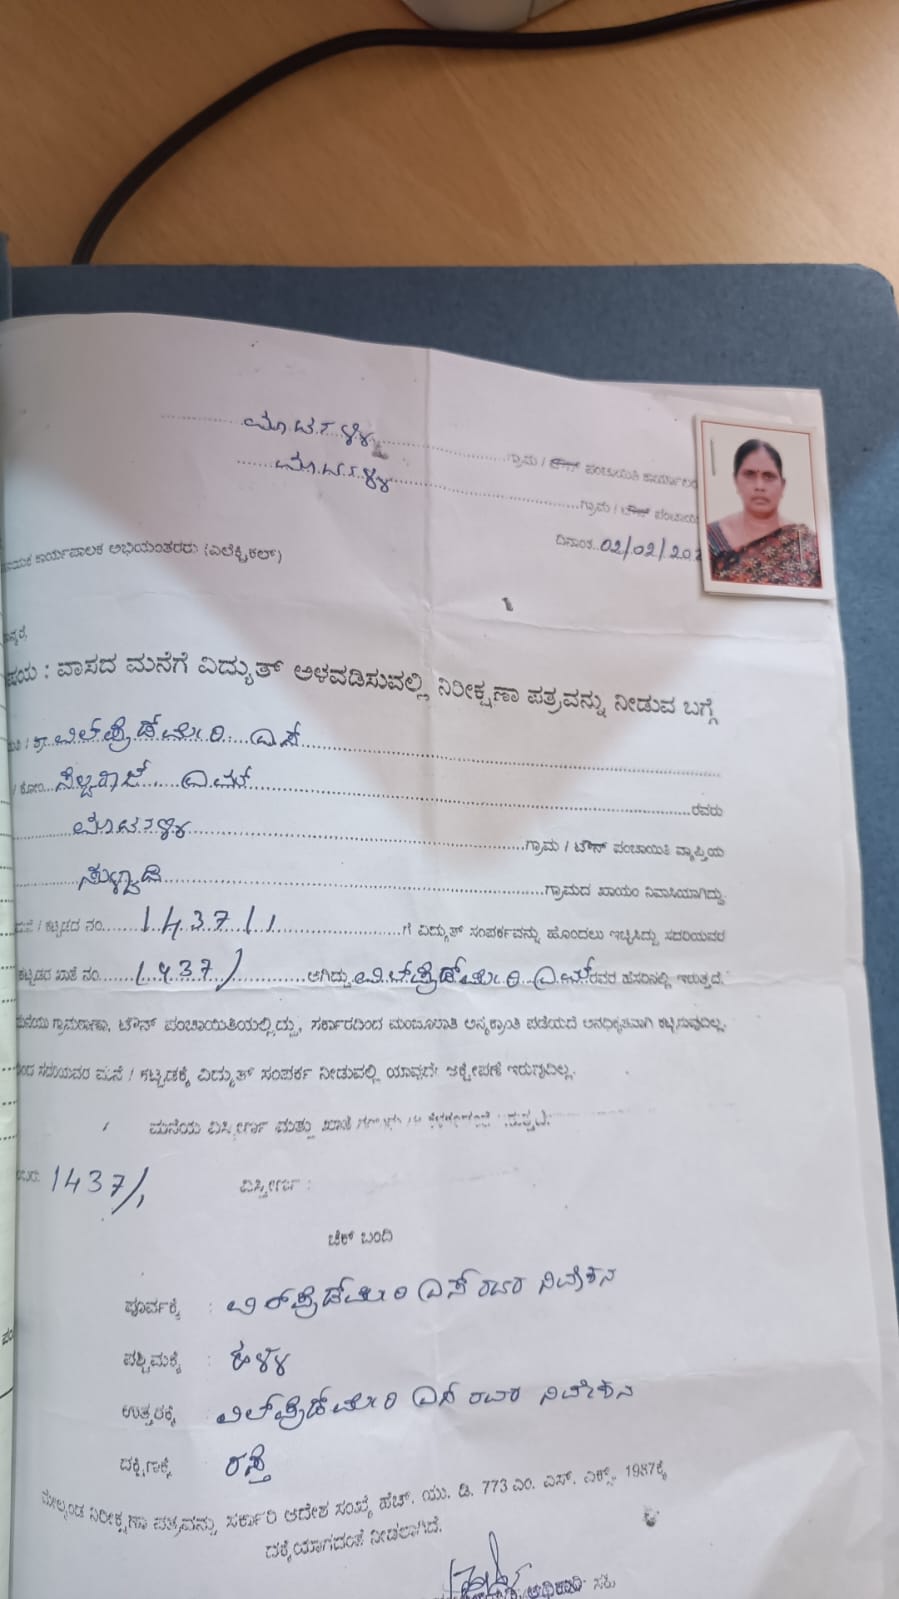 ಮಾರ್ಟಳ್ಳಿ ಗ್ರಾಮ / ಟೌನ್ ಪಂಚಾಯಿತಿ ಕಾರ್ಯಾಲಯ
ಮಾರ್ಟಳ್ಳಿ ಗ್ರಾಮ / ಟೌನ್ ಪಂಚಾಯ
ದಿನಾಂಕ..02/02/202
ಕಾರ್ಯಪಾಲಕ ಅಭಿಯಂತರರು (ಎಲೆಕ್ಟ್ರಿಕಲ್)
ಮಾನ್ಯರೆ,
ವಿಷಯ : ವಾಸದ ಮನೆಗೆ ವಿದ್ಯುತ್ ಅಳವಡಿಸುವಲ್ಲಿ ನಿರೀಕ್ಷಣಾ ಪತ್ರವನ್ನು ನೀಡುವ ಬಗ್ಗೆ
ವಿಲ್‌ಪ್ರೆಡ್‌ಮೇರಿ ಎಸ್
ಸೆಲ್ವರಾಜ್ ಎಮ್ ರವರು
ಮಾರ್ಟಳ್ಳಿ ಗ್ರಾಮ / ಟೌನ್ ಪಂಚಾಯಿತಿ ವ್ಯಾಪ್ತಿಯ
ಸುಳ್ವಾಡಿ ಗ್ರಾಮದ ಖಾಯಂ ನಿವಾಸಿಯಾಗಿದ್ದು
ಮನೆ / ಕಟ್ಟಡದ ನಂ. 1437/1 ಗೆ ವಿದ್ಯುತ್ ಸಂಪರ್ಕವನ್ನು ಹೊಂದಲು ಇಚ್ಛಿಸಿದ್ದು ಸದರಿಯವರ
ಕಟ್ಟಡದ ಖಾತೆ ನಂ. 1437/1 ಆಗಿದ್ದು ವಿಲ್‌ಪ್ರೆಡ್‌ಮೇರಿ ಎಸ್ ರವರ ಹೆಸರಿನಲ್ಲಿ ಇರುತ್ತದೆ.
ಮನೆಯು ಗ್ರಾಮಠಾಣಾ, ಟೌನ್ ಪಂಚಾಯಿತಿಯಲ್ಲಿದ್ದು, ಸರ್ಕಾರದಿಂದ ಮಂಜೂರಾತಿ ಅನ್ಯಕ್ರಾಂತಿ ಪಡೆಯದೆ ಅನಧಿಕೃತವಾಗಿ ಕಟ್ಟಿಸುವುದಿಲ್ಲ.
ಸದರಿಯವರ ಮನೆ / ಕಟ್ಟಡಕ್ಕೆ ವಿದ್ಯುತ್ ಸಂಪರ್ಕ ನೀಡುವಲ್ಲಿ ಯಾವುದೇ ಆಕ್ಷೇಪಣೆ ಇರುವುದಿಲ್ಲ.
ಮನೆಯ ವಿಸ್ತೀರ್ಣ ಮತ್ತು ಖಾತೆ
1437/1 ವಿಸ್ತೀರ್ಣ :
ಚೆಕ್ ಬಂದಿ
ಪೂರ್ವಕ್ಕೆ : ವಿಲ್‌ಪ್ರೆಡ್‌ಮೇರಿ ಎಸ್ ರವರ ನಿವೇಶನ
ಪಶ್ಚಿಮಕ್ಕೆ : ಹಳ್ಳ
ಉತ್ತರಕ್ಕೆ : ವಿಲ್‌ಪ್ರೆಡ್‌ಮೇರಿ ಎಸ್ ರವರ ನಿವೇಶನ
ದಕ್ಷಿಣಕ್ಕೆ : ರಸ್ತೆ
ಮೇಲ್ಕಂಡ ನಿರೀಕ್ಷಣಾ ಪತ್ರವನ್ನು ಸರ್ಕಾರಿ ಆದೇಶ ಸಂಖ್ಯೆ ಹೆಚ್. ಯು. ಡಿ. 773 ಎಂ. ಎಸ್. ಎಕ್ಸ್. 1987ಕ್ಕೆ
ದಕ್ಕೆಯಾಗದಂತೆ ನೀಡಲಾಗಿದೆ.
ಅಧಿಕಾರಿ